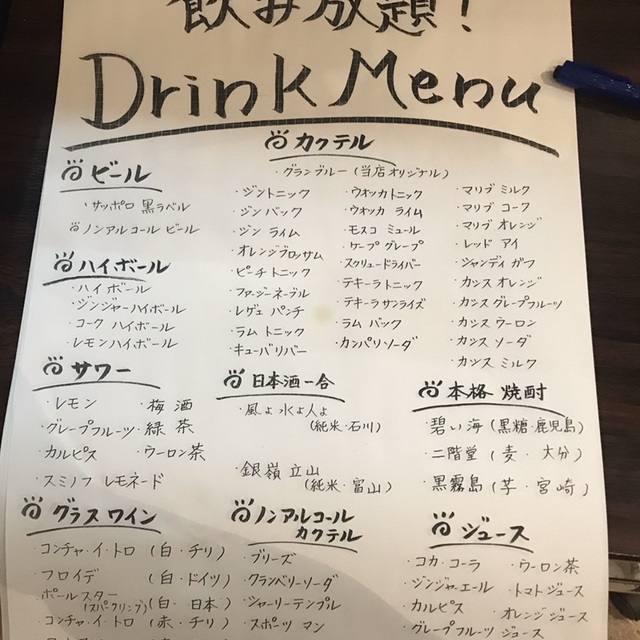 飲み放題!
Drink Menu
ビール
・サッポロ 黒ラベル
ノンアルコール ビール
ハイボール
・ハイ ボール
・ジンジャーハイボール
・コーク ハイボール
・レモンハイボール
カクテル
・グランブルー (当店オリジナル)
・ジントニック
・ジン バック
・ジン ライム
・オレンジブロッサム
・ピーチ トニック
・ファジーネーブル
・レゲェ パンチ
・ラム トニック
・キューバリバー
・ウォッカトニック
・ウォッカ ライム
・モスコ ミュール
・ケープ グレープ
・スクリュードライバー
・テキーラ トニック
・テキーラ サンライズ
・ラム バック
・カンパリソーダ
・マリブ ミルク
・マリブ コーク
・マリブ オレンジ
・レッド アイ
・シャンディ ガフ
・カシス オレンジ
・カシス グレープフルーツ
・カシス ウーロン
・カシス ソーダ
・カシス ミルク
サワー
・レモン
・グレープフルーツ
・カルピス
・スミノフ レモネード
・梅 酒
・緑 茶
・ウーロン茶
日本酒一合
・風よ水よ人よ
(純米・石川)
・銀嶺 立山
(純米・富山)
本格 焼酎
・碧い海 (黒糖・鹿児島)
・二階堂 (麦・大分)
・黒霧島 (芋・宮崎)
グラス ワイン
・コンチャ・イ・トロ (白・チリ)
・フロイデ (白・ドイツ)
・ポール スター
(スパークリング) (白・日本)
・コンチャ・イ・トロ (赤・チリ)
ノンアルコール
カクテル
・ブリーズ
・クランベリーソーダ
・シャーリーテンプル
・スポーツ マン
ジュース
・コカ・コーラ
・ジンジャーエール
・カルピス
・グレープフルーツ ジュース
・ウーロン茶
・トマト ジュース
・オレンジ ジュース